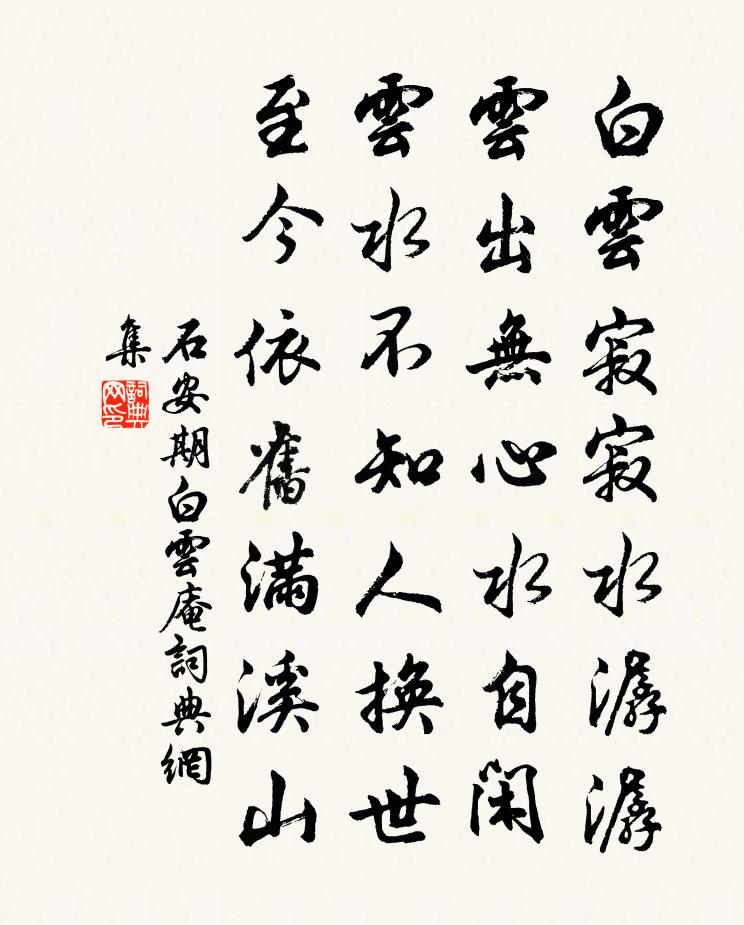 白雲寂寂水潺潺
雲出無心水自閑
雲水不知人換世
至今依舊滿溪山
石安期白雲庵詞典網
集
詞典網印